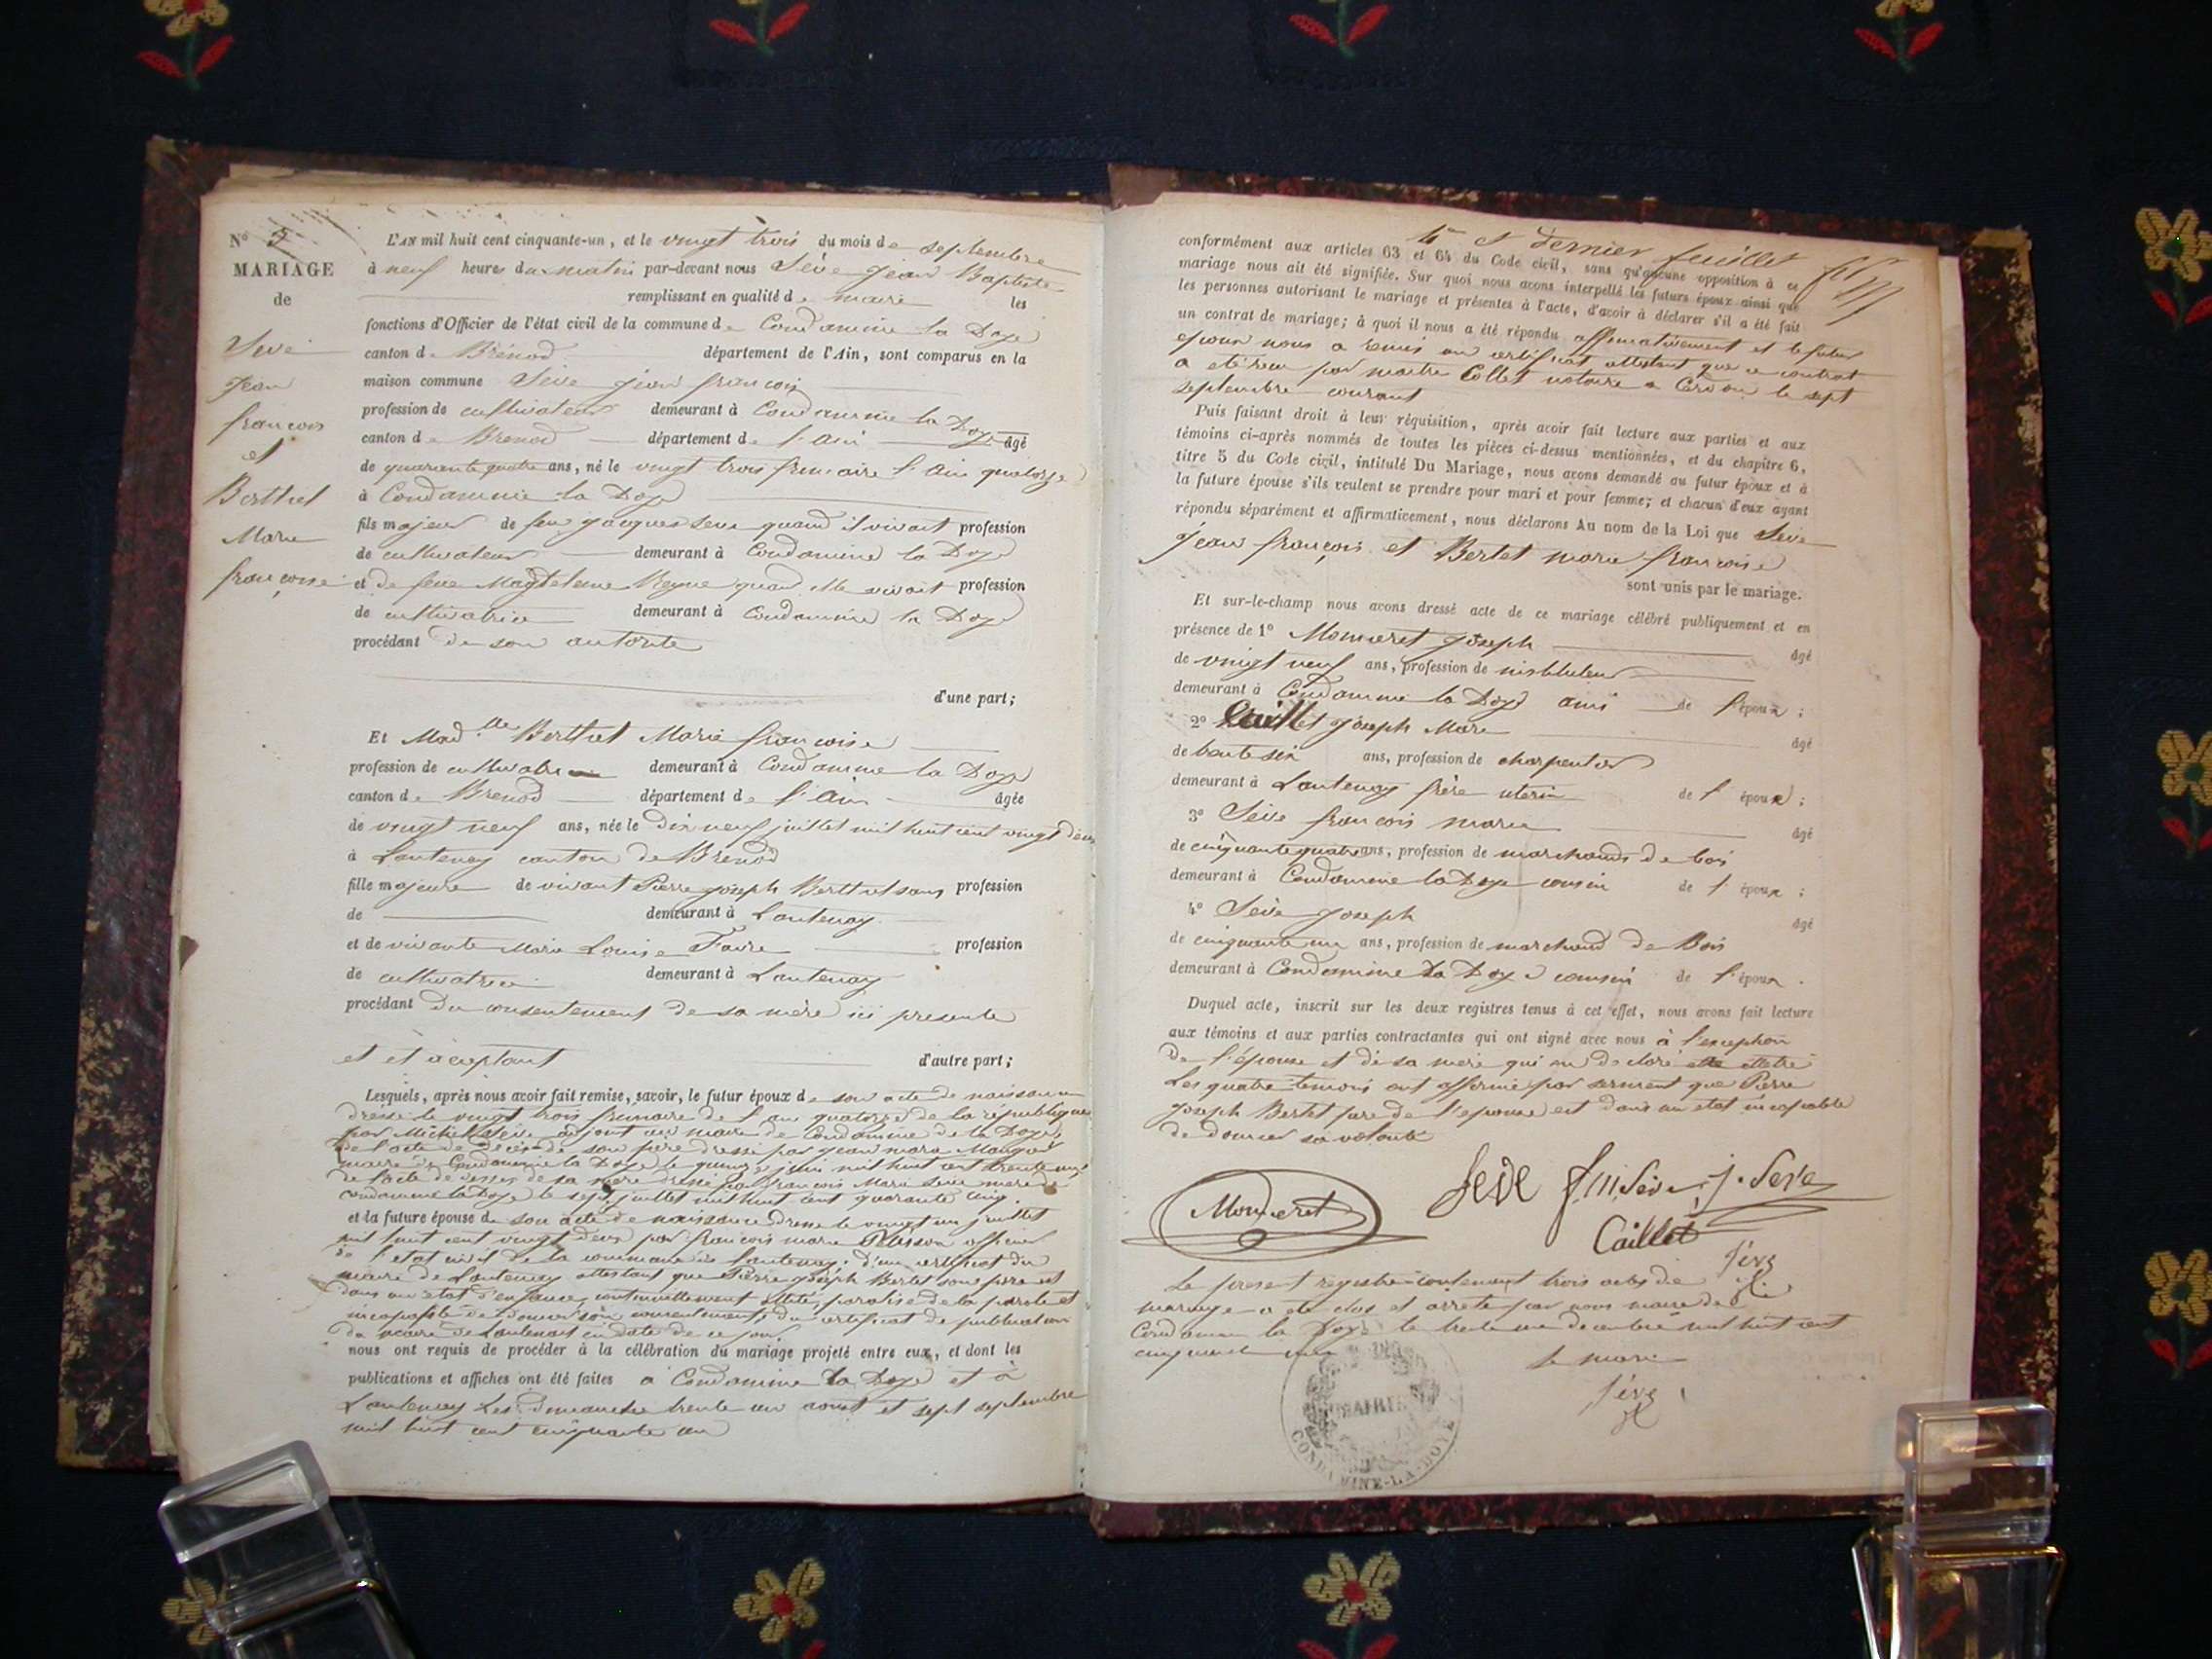 N° 3
MARIAGE
de
Sève
Jean
françois
et
Berthet
Marie
françoise
L'AN mil huit cent cinquante-un, et le vingt trois du mois de septembre
à neuf heures du matin par-devant nous Sève Jean Baptiste
remplissant en qualité de maire les
fonctions d'Officier de l'état civil de la commune de Condamine la Doye
canton de Brénod département de l'Ain, sont comparus en la
maison commune Sève jean françois
profession de cultivateur demeurant à Condamine la Doye
canton de Brenod département de l'Ain âgé
de quarante quatre ans, né le vingt trois frimaire l'an quatorze
à Condamine la Doye
fils majeur de feu jacques Seve quand il vivait profession
de cultivateur demeurant à Condamine la Doye
et de feue Magdeleine quand elle vivait profession
de cultivatrice demeurant à Condamine la Doye
procédant de son autorité
d'une part;
Et Mad.lle Berthet Marie françoise
profession de cultivatrice demeurant à Condamine la Doye
canton de Brenod département de l'Ain âgée
de vingt neuf ans, née le dix neuf juillet mil huit cent vingt deux
à Lantenay canton de Brenod
fille majeure de vivant Pierre joseph Berthet sans profession
de demeurant à Lantenay
et de vivante Marie Louise Favre profession
de cultivatrice demeurant à Lantenay
procédant du consentement de sa mère ici presente
et acceptant d'autre part;
Lesquels, après nous avoir fait remise, savoir, le futur époux de son acte de naissance
dressé le vingt trois frimaire de l'an quatorze de la république
par Michel Sève adjoint au maire de Condamine de la Doye,
de l'acte de décès de son père dressé par jean marie
maire de Condamine la Doye le quinze juin mil huit cent trente
de l'acte de décès de sa mère dressé par françois Marie Seve maire de
Condamine la Doye le sept juillet mil huit cent quarante cinq.
et la future épouse de son acte de naissance dressé le vingt un juillet
mil huit cent vingt deux par françois marie officier
de l'etat civil de la commune de Lantenay; d'un certificat du
maire de Lantenay attestant que Pierre joseph Bertet son père est
dans un etat d'enfance, continuellement alité, paralisé de la parole et
incapable de donner son consentement, du certificat de publication
du maire de Lantenay en date de ce jour.
nous ont requis de procéder à la célébration du mariage projeté entre eux, et dont les
publications et affiches ont été faites a Condamine la Doye et à
Lantenay les dimanche trente un aout et sept septembre
mil huit cent cinquante un
4e et dernier feuillet
conformément aux articles 63 et 64 du Code civil, sans qu'aucune opposition à ce
mariage nous ait été signifiée. Sur quoi nous avons interpellé les futurs époux ainsi que
les personnes autorisant le mariage et présentes à l'acte, d'avoir à déclarer s'il a été fait
un contrat de mariage; à quoi il nous a été répondu affirmativement et le futur
epoux nous a remis un certificat attestant que ce contrat
a été reçu par maitre Collet notaire a Cerdon le sept
septembre courant
Puis faisant droit à leur réquisition, après avoir fait lecture aux parties et aux
témoins ci-après nommés de toutes les pièces ci-dessus mentionnées, et du chapitre 6,
titre 5 du Code civil, intitulé Du Mariage, nous avons demandé au futur époux et à
la future épouse s'ils veulent se prendre pour mari et pour femme; et chacun d'eux ayant
répondu séparément et affirmativement, nous déclarons Au nom de la Loi que Seve
jean françois et Bertet marie françoise
sont unis par le mariage.
Et sur-le-champ nous avons dressé acte de ce mariage célébré publiquement et en
présence de 1° Momeret joseph âgé
de vingt neuf ans, profession de instituteur
demeurant à Condamine la Doye ami de l'époux;
2° Caillet joseph Marie âgé
de trente six ans, profession de charpentier
demeurant à Lantenay frère uterin de l'époux;
3° Sève francois marie âgé
de cinquante quatre ans, profession de marchand de bois
demeurant à Condamine la Doye cousin de l'époux;
4° Seve joseph âgé
de cinquante un ans, profession de marchand de Bois
demeurant à Condamine la Doye cousin de l'époux.
Duquel acte, inscrit sur les deux registres tenus à cet effet, nous avons fait lecture
aux témoins et aux parties contractantes qui ont signé avec nous à l'exception
de l'épouse et de sa mere qui on declaré illetré
Les quatre temoins ont affirmé par serment que Pierre
joseph Bertet pere de l'epouse est dans un etat incapable
de donner sa volonté
Momeret Seve f. m. Seve j. Seve
Caillet
Sève
Le present registre contenant trois actes de
mariage a été clos et arreté par nous maire de
Condamine la Doye le trente un decembre mil huit cent
cinquante un
le maire
Sève
MAIRIE
CONDAMINE-LA-DOYE